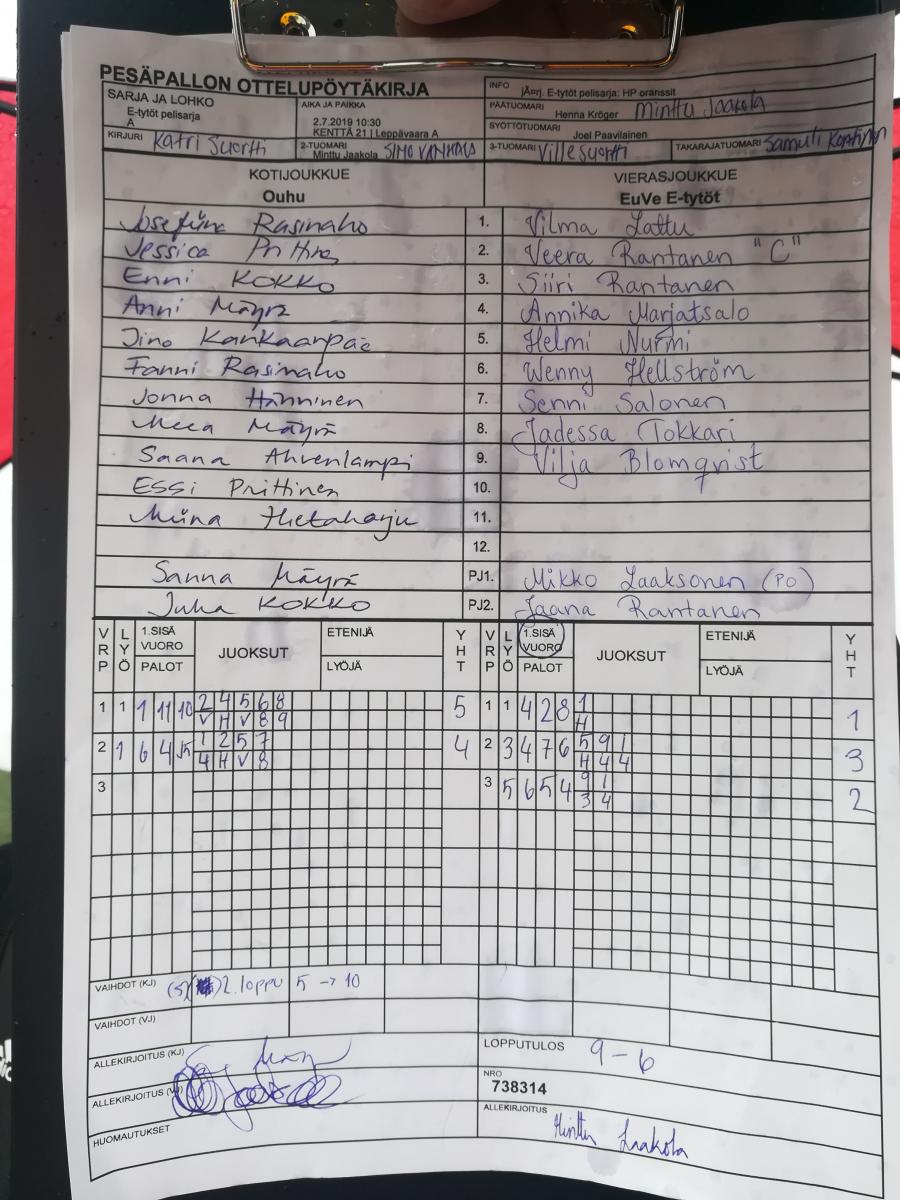 PESÄPALLON OTTELUPÖYTÄKIRJA
SARJA JA LOHKO
E-tytöt pelisarja
A
AIKA JA PAIKKA
2.7.2019 10:30
KENTTÄ 21 | Leppävaara A
INFO jÄrrj. E-tytöt pelisarja: HP oranssit
PÄÄTUOMARI Henna Kröger Minttu Jaakola
SYÖTTÖTUOMARI Joel Paavilainen
KIRJURI Katri Suortti
2-TUOMARI Minttu Jaakola SIMO
3-TUOMARI Ville Suortti
TAKARAJATUOMARI Samuli
KOTIJOUKKUE VIERASJOUKKUE
Ouhu EuVe E-tytöt
Josefiina Rasinaho 1. Vilma Lattu
Jessica 2. Veera Rantanen "C"
Enni KOKKO 3. Siiri Rantanen
Anni Mäyrä 4. Annika Marjatsalo
Kankaanpää 5. Helmi Nurmi
Fanni Rasinaho 6. Wenny Hellström
Jonna Hänninen 7. Senni Salonen
Meea Mäyrä 8. Jadessa Tokkari
Saana Ahvenlampi 9. Vilja Blomqvist
Essi Piittinen 10.
Miina Hietaharju 11.
12.
Sanna Mäyrä PJ1. Mikko Laaksonen (PO)
Juha KOKKO PJ2. Jaana Rantanen
VRP LYÖ 1.SISÄ VUORO PALOT JUOKSUT ETENIJÄ LYÖJÄ YHT VRP LYÖ 1.SISÄ VUORO PALOT JUOKSUT ETENIJÄ LYÖJÄ YHT
1 1 1 11 10 2 4 5 6 8 5 1 1 4 2 8 1 1
V H V 8 9 H
2 1 6 4 1 2 5 7 4 2 3 4 7 6 5 9 1 3
4 H V 8 H 4 4
3 3 5 6 5 4 9 1 2
3 4
VAIHDOT (KJ) (S) 2. loppu 5 → 10
VAIHDOT (VJ)
ALLEKIRJOITUS (KJ)
LOPPUTULOS 9 – 6
ALLEKIRJOITUS (VJ)
NRO
738314
HUOMAUTUKSET
ALLEKIRJOITUS Minttu Jaakola